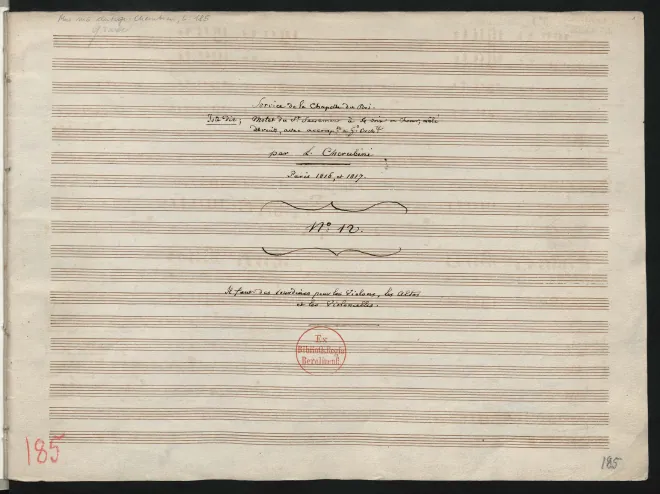 Mus. ms. autogr. Cherubini, L. 185
Service de la Chapelle du Roi.
Iste dies; Motet du St. Sacrement à
avec
par L. Cherubini
Paris 1816, et 1817.
N.º 12.
Il faut des sourdines pour les Violons, les Altos
et les Violoncelles.
Ex
Biblioth. Regia
Berolinenſi
185
185